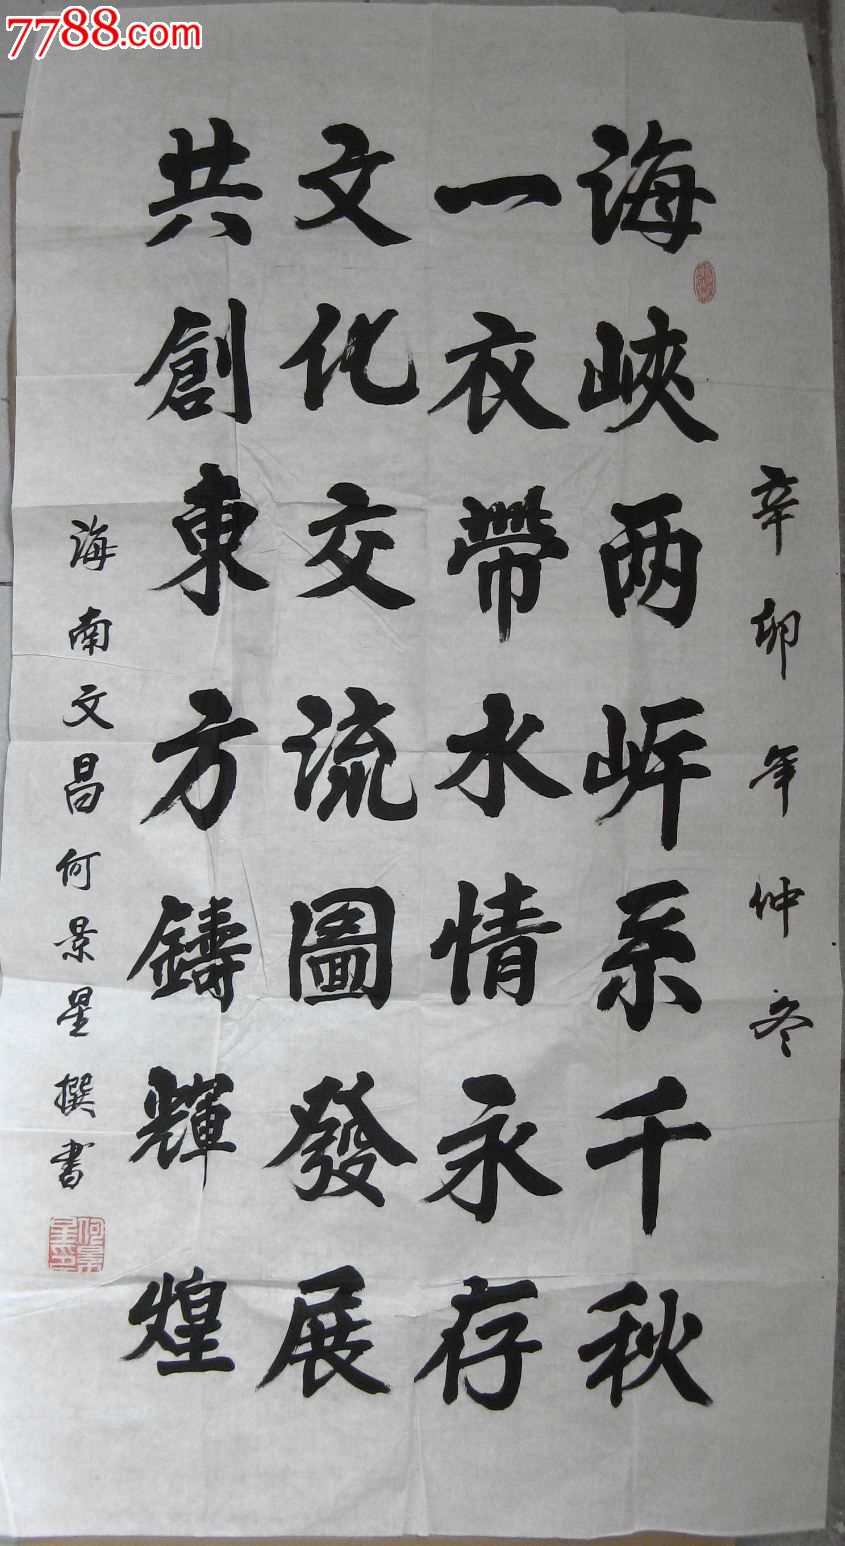 7788.com
辛卯年仲冬
海峽两岸系千秋
一衣帶水情永存
文化交流圖發展
共創東方鑄輝煌
海南文昌何景星撰書
何景星印